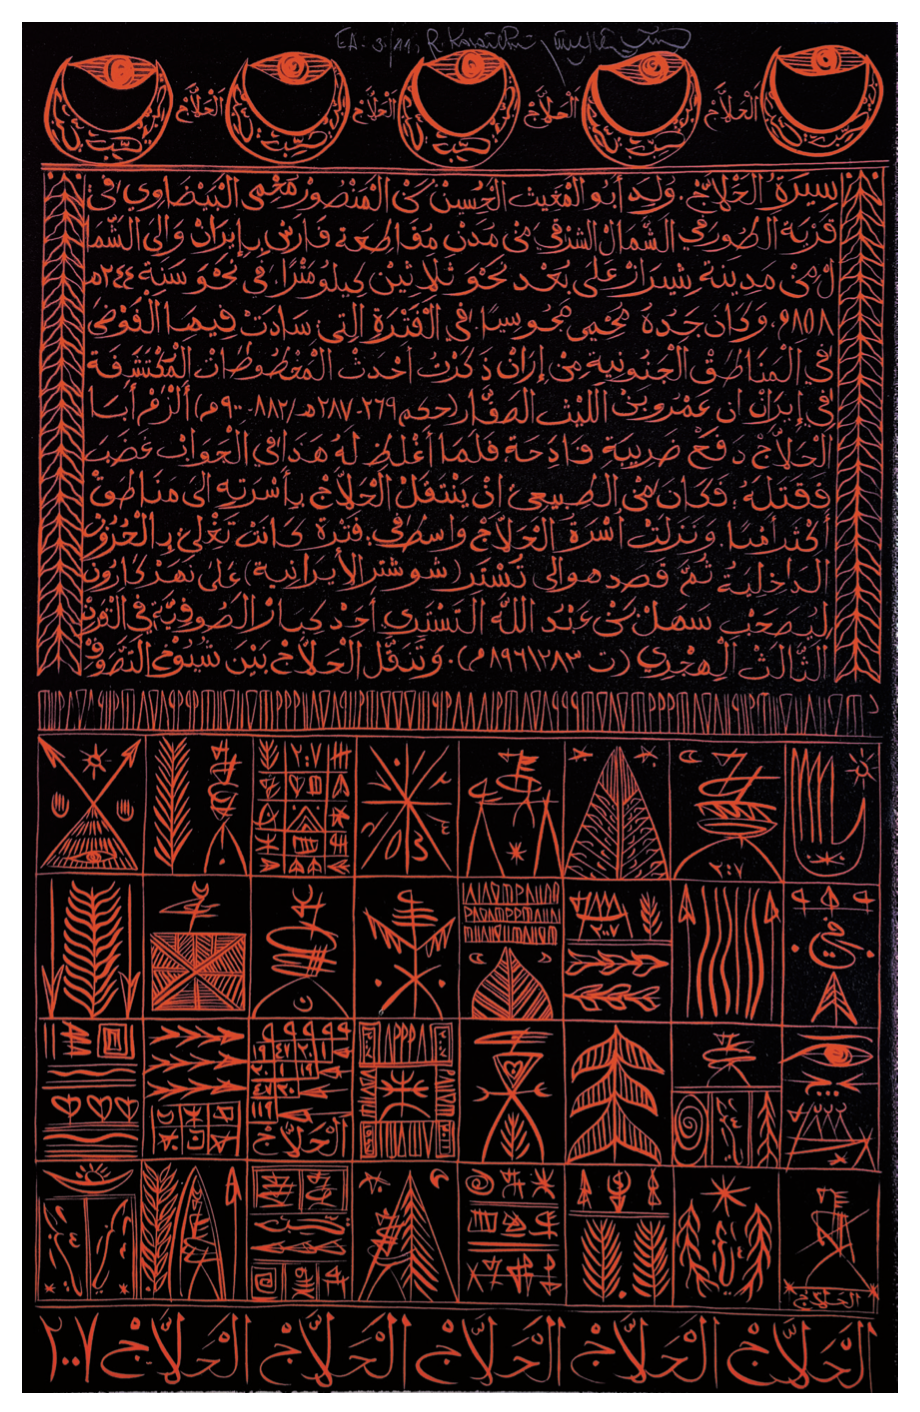 EA: 3/11, R. Koraïchi
الحَلَّاج الحَلَّاج الحَلَّاج الحَلَّاج
سيرَةُ الحَلَّاج. وُلِدَ أَبُو المُغيث الحُسينْ بنْ المَنْصُورْ مَحْمَى البَيْضَاوِي في
قَرْيَة الطُور في الشَّمالْ الشرقي منْ مَدنْ مُقَاطَعة فَارسْ بإيرَانْ وَإلَى الشَّما
ل منْ مَدينَة شيرَازْ عَلَى بُعْد نَحْوَ ثَلَاثينْ كيلُومتْرًا في نَحْوَ سَنَة ٢٤٤هـ
٨٥٨م. وَكَان جَدُهُ مَحْمى مَجُوسيًا في الفَتْرَة التي سَادَتْ فيهَا الفَوْضَى
في المَنَاطقْ الجَنُوبية منْ إيرَانْ ذَكَرَتْ أَحْدَثْ المَخْطُوطَاتْ المُكْتَشَفَة
في إيرَانْ ان عَمْرُو بنْ الليْثْ الصَفَّار (حكم ٢٦٩-٢٨٧هـ/٨٨٢-٩٠٠م) أَلْزَمْ أَبَا
الحَلَّاجْ دَفعْ ضَريبَة فَادحَة فَلَمَا أَغْلَظ لَهُ هَذَا في الجَوَابْ غَضَبَ
فَقَتَلَهُ. فَكَانَ منْ الطبيعي انْ يَنْتَقلْ الحَلَّاجْ بأُسْرَته إلى مَنَاطقْ
أَكْثَر أَمْنًا. وَنَزَلَتْ أُسْرَةُ الحَلَّاجْ وَاسطْ في فَتْرَة كَانَتْ تَغْلي بالحُرُوبْ
الدَاخليَة ثُمَّ قَصَدهوا إلى تُسْتَر (شوشتر الأيرانية) عَلى نَهَرْ كَارُون
ليَصْحَبْ سَهَلْ بنْ عَبْدَ اللَّهْ التَسْتَري أَحَدْ كبَارْ الصُوفيَّة في القَرنْ
الثَّالثْ الهجْري (ت ٢٨٣/٨٩٦م). وَتَنَقَّلَ الحَلَّاجْ بَيْن شُيُوخْ التَصَوُفْ
٢٠٠٧
٢٠٠٧
٢٠٠٧
في
الحَلَّاج
الحلاج
الحَلَّاج الحَلَّاج الحَلَّاج الحَلَّاج الحَلَّاج ٢٠٠٧